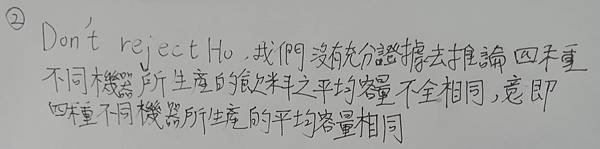 ② Don't reject Ho,我們沒有充分證據去推論四種
不同機器所生產的飲料之平均容量不全相同,意即
四種不同機器所生產的平均容量相同